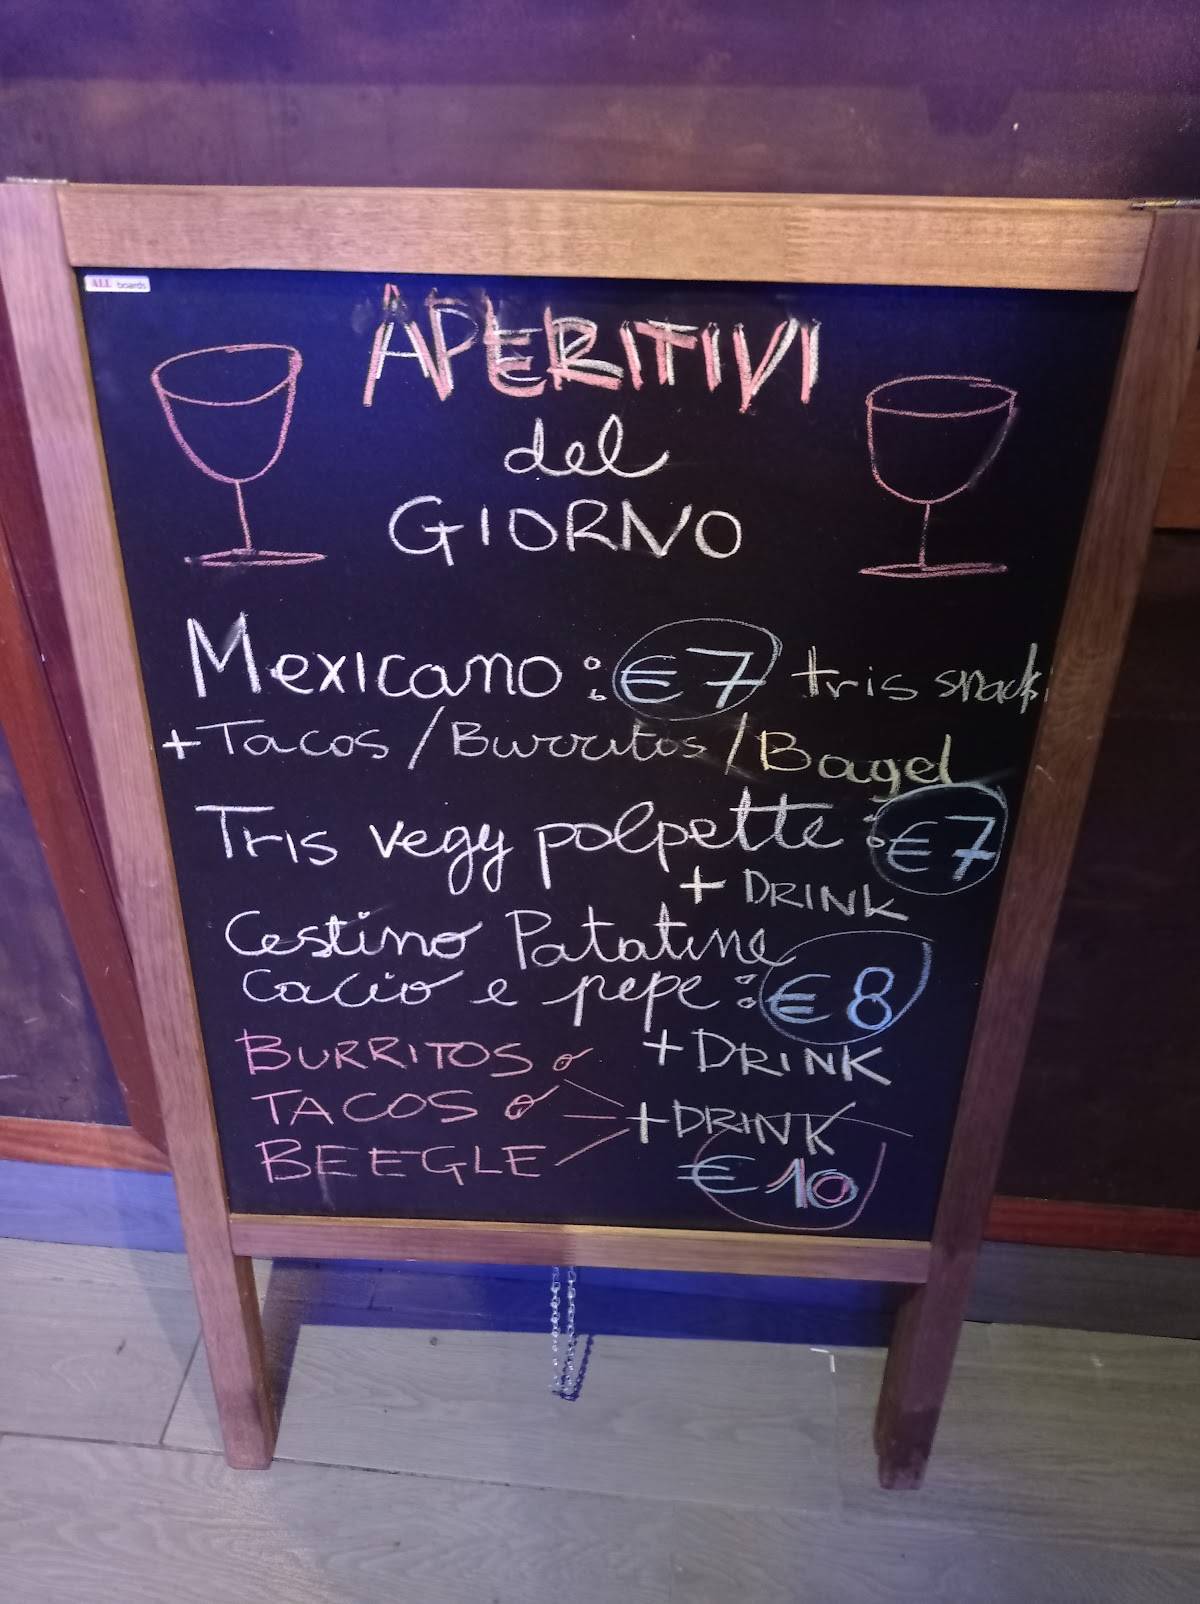 ALL boards
APERITIVI
del
GIORNO
Mexicano: €7 tris snack
+ Tacos / Burritos / Bagel
Tris vegy polpette: €7
+ DRINK
Cestino Patatine
Cacio e pepe: €8
+ DRINK
BURRITOS
TACOS
+ DRINK
BEEGLE
€10